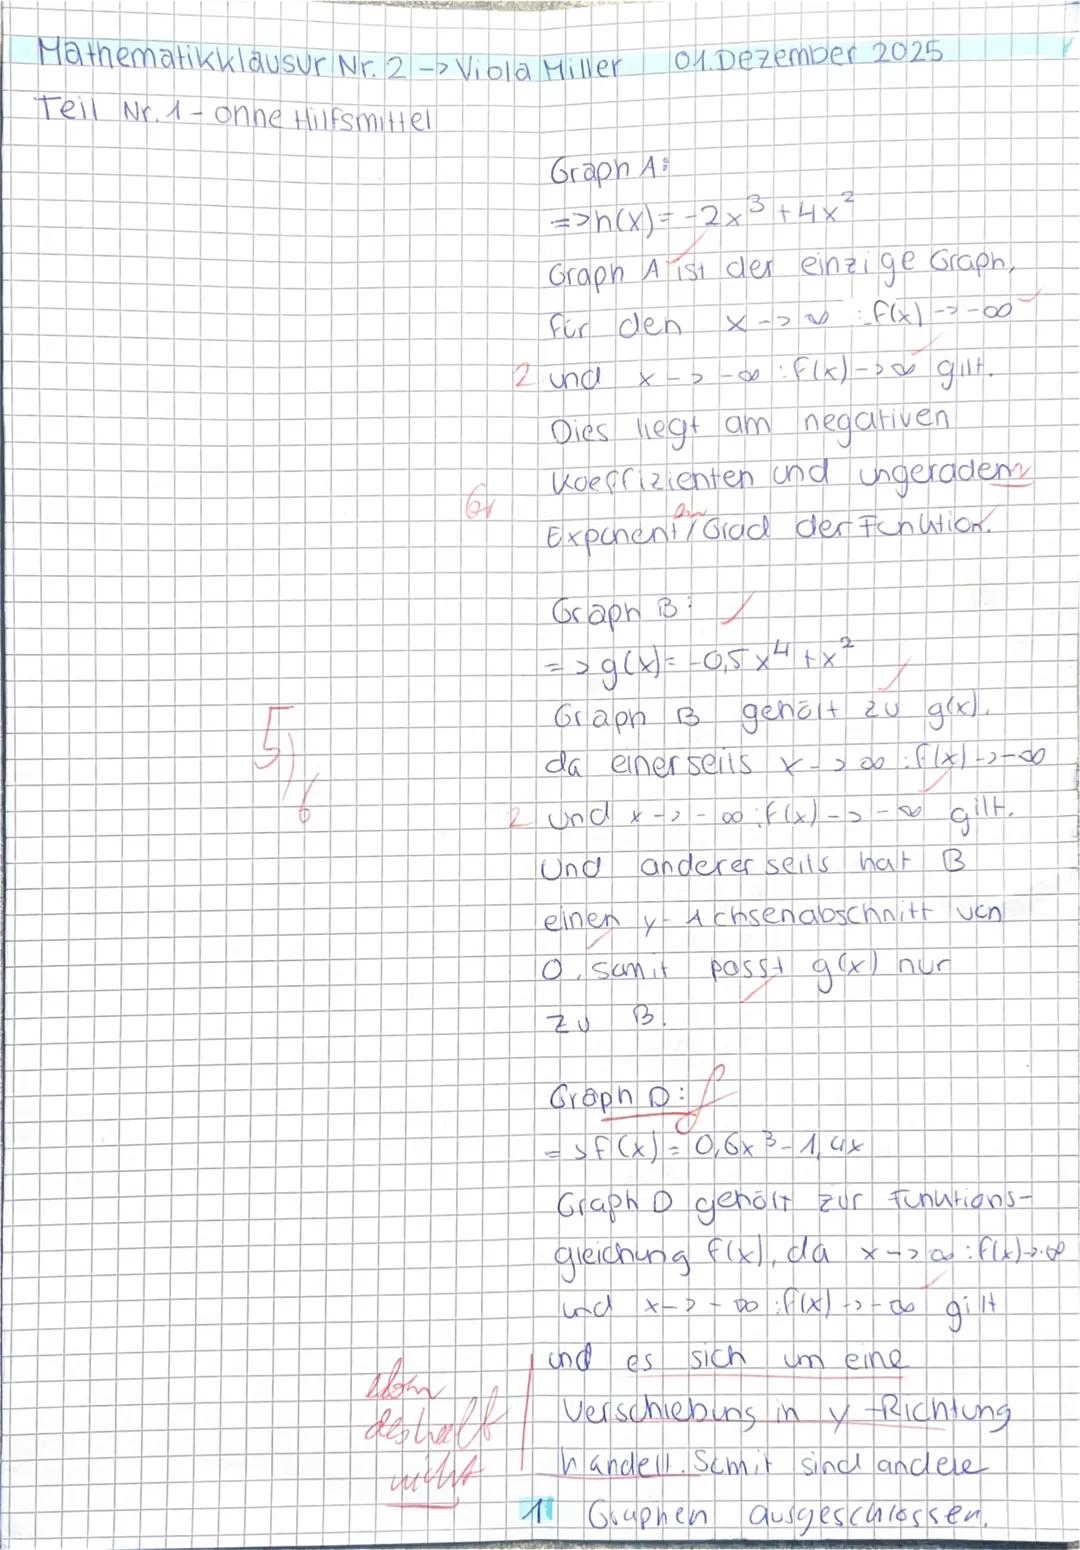 Mathematikklausur Nr. 2 -> Viola Miller 01. Dezember 2025
Teil Nr. 1 - ohne Hilfsmittel
Graph A:
=> h(x) = -2x³ + 4x²
Graph A ist der einzige Graph,
für den x -> ∞ : f(x) -> -∞
2 und x -> -∞ : f(x) -> ∞ gilt.
Dies liegt am negativen
Koeffizienten und ungeradem
Gr
Exponent/Grad der Funktion.
Graph B:
=> g(x) = -0,5x⁴ + x²
Graph B gehört zu g(x),
5,
da einerseits x -> ∞ : f(x) -> -∞
6
2 und x -> -∞ : f(x) -> -∞ gilt.
Und andererseits hat B
einen y-Achsenabschnitt von
0, somit passt g(x) nur
zu B.
Graph D: f
=> f(x) = 0,6x³ - 1,4x
Graph D gehört zur Funktions-
gleichung f(x), da x -> ∞ : f(x) -> ∞
und x -> -∞ : f(x) -> -∞ gilt
und es sich um eine
Verschiebung in y-Richtung
deshalb
nicht
handelt. Somit sind andere
1 Graphen ausgeschlossen.